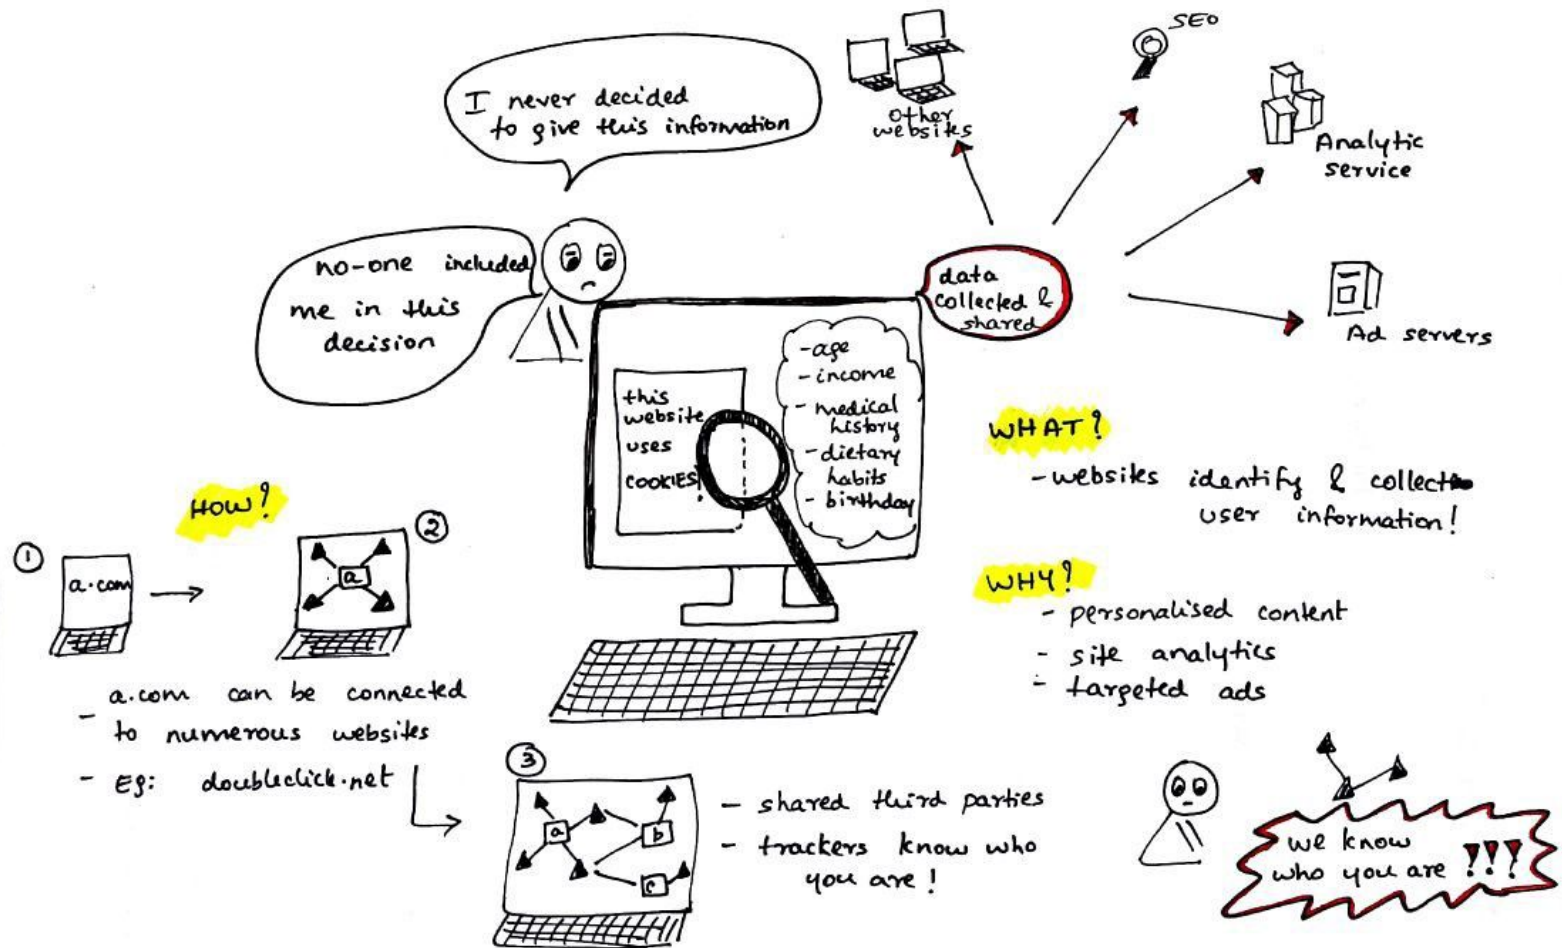 I never decided
to give this information
no-one included
me in this
decision
other
websites
SEO
Analytic
service
Ad servers
data
collected &
shared
this
website
uses
COOKIES!
- age
- income
- medical
history
- dietary
habits
- birthday
WHAT?
- websites identify & collect
user information!
WHY?
- personalised content
- site analytics
- targeted ads
HOW?
1
a.com
2
a
- a.com can be connected
to numerous websites
- Eg: doubleclick.net
3
a
b
c
- shared third parties
- trackers know who
you are!
we know
who you are !!!